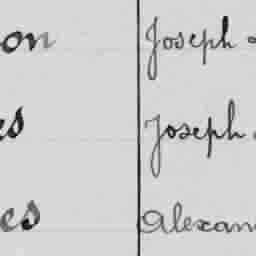 on Joseph
es Joseph
es Alexan